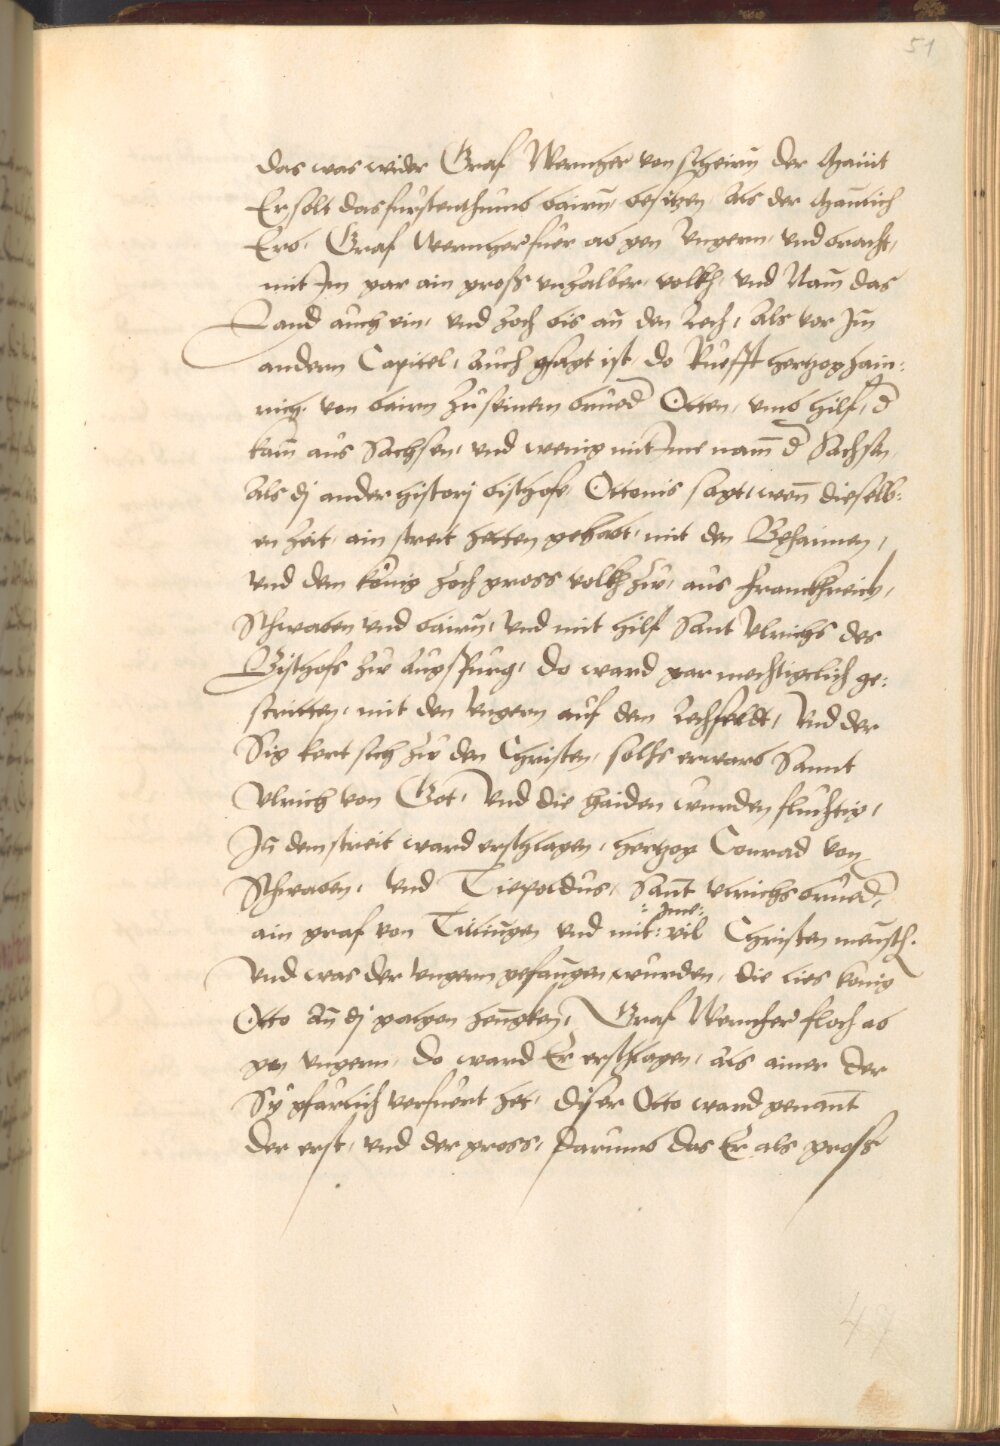 51
das was wider Graf Wernher von scheirn der maint
Er solt das furstenthumb bairn, besitzen, als der Manlich
Erb, Graf Wernher fuer ab gen Ungern, und bracht,
mit Im gar ain gross unzalber, volkh, und Nam das
Land auch ein, und zoch bis an den Lech, Als vor Im
andern Capitel, auch gsagt ist, do Rüefft hertzog hain:
rich, von bairn zu seinem brued Otten, umb hilf, d
kam aus Sachsen, und wenig mit Ime nam d Sachsen
als dj ander historj bischofs Ottonis sagt, wen dieselb:
en zeit, ain streit hetten gehabt, mit den Behaimen,
und dem könig zoch gross volkh zů, aus Franckhreich,
Schwaben und bairn, und mit hilf Sant Ulrichs des
Bischofs zů Augspurg, do ward gar mechtigclich ge:
stritten, mit den Ungern auf dem Lechfeldt, Und der
Sig kert sich zů den Christen, solhs erwarb Sannt
Ulrich von Got, Und die haiden wurden fluchtig,
In dem streit ward erschlagen, hertzog Conrad von
Schwaben, und Tiepoldus, Sant Ulrichs brued,
ain graf von Tilingen und mit: Ime: vil Christen mensch.
Und was der Ungern gefangen wurden, die lies könig
Otto An dj galgen hengken, Graf Wernher floch ab
gen Ungern, do ward Er erschlagen, als ainer der
Sy gfarlich verfuert het, diser Otto ward genant
der erst, und der gross, Darumb das Er als gross
47